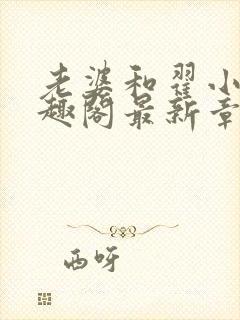 老婆和翟小
趣阁最新章
西呀